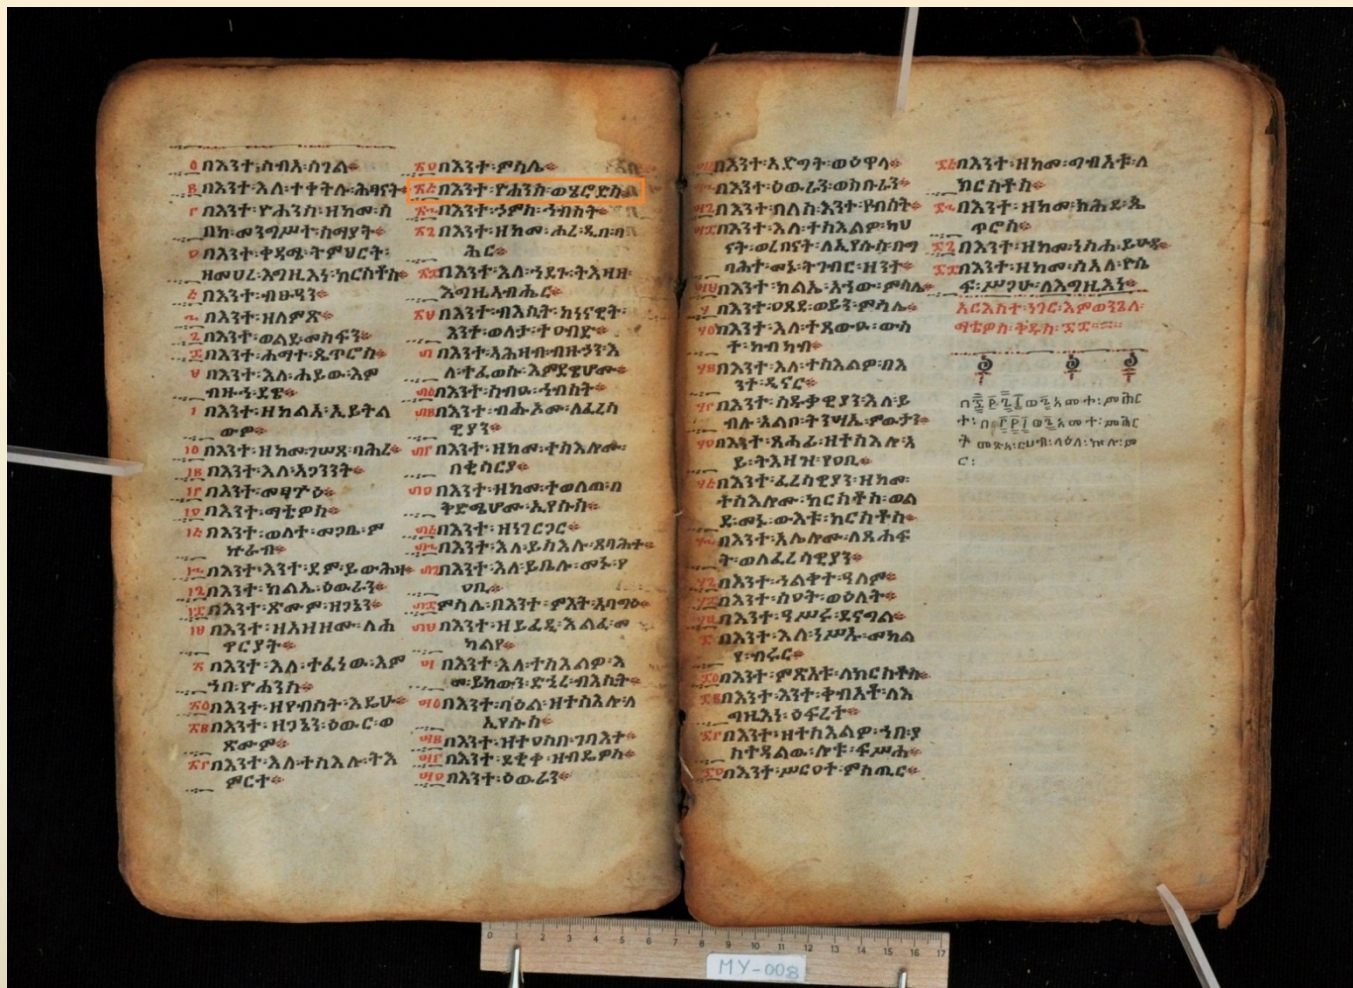 ፩ በእንተ፡ሰብአ፡ሰገል።
፪ በእንተ፡እለ፡ተቀትሉ፡ሕፃናት።
፫ በእንተ፡ዮሐንስ፡ዘከመ፡ሰ
በከ፡መንግሥተ፡ሰማያት።
፬ በእንተ፡ቀዳሜ፡ትምህርት፡
ዘመሀረ፡እግዚእነ፡ክርስቶስ።
፭ በእንተ፡ብፁዓን።
፮ በእንተ፡ዘለምጽ።
፯ በእንተ፡ወልደ፡መስፍን።
፰ በእንተ፡ሐማተ፡ጴጥሮስ።
፱ በእንተ፡እለ፡ሐይው፡እም
ብዙኅ፡ደዌ።
፲ በእንተ፡ዘከልአ፡ኢይትል
ውዎ።
፲፩ በእንተ፡ዘከመ፡ገሠጸ፡ባሕረ።
፲፪ በእንተ፡እለ፡አጋንንት።
፲፫ በእንተ፡መፃጕዕ።
፲፬ በእንተ፡ማቴዎስ።
፲፭ በእንተ፡ወለተ፡መጋቤ፡ም
ኵራብ።
፲፮ በእንተ፡እንተ፡ደም፡ይውሕዛ።
፲፯ በእንተ፡ክልኤ፡ዕውራን።
፲፰ በእንተ፡ጽሙም፡ዘጋኔን።
፲፱ በእንተ፡ዘአዘዞሙ፡ለሐ
ዋርያት።
፳ በእንተ፡እለ፡ተፈነው፡እም
ኀበ፡ዮሐንስ።
፳፩ በእንተ፡ዘየብሰት፡እዴሁ።
፳፪ በእንተ፡ዘጋኔን፡ዕውር፡ወ
ጽሙም።
፳፫ በእንተ፡እለ፡ተስእሉ፡ትእ
ምርተ።
፳፬ በእንተ፡ምሳሌ።
፳፭ በእንተ፡ዮሐንስ፡ወሄሮድስ
፳፮ በእንተ፡ኃምስ፡ኅብስት።
፳፯ በእንተ፡ዘከመ፡ሖረ፡ዲበ፡ባ
ሕር።
፳፰ በእንተ፡እለ፡ኀደጉ፡ትእዛዘ፡
እግዚአብሔር።
፳፱ በእንተ፡ብእሲት፡ከነናዊት፡
እንተ፡ወለታ፡ተዐብድ።
፴ በእንተ፡አሕዛብ፡ብዙኃን፡እ
ለ፡ተፈወሱ፡እምደዌሆሙ።
፴፩ በእንተ፡ሰብዑ፡ኅብስት።
፴፪ በእንተ፡ብሑእሙ፡ለፈረሳ
ዊያን።
፴፫ በእንተ፡ዘከመ፡ተስእሎሙ፡
በቂሳርያ።
፴፬ በእንተ፡ዘከመ፡ተወለጠ፡በ
ቅድሜሆሙ፡ኢየሱስ።
፴፭ በእንተ፡ዘነገርጋር።
፴፮ በእንተ፡እለ፡ይስእሉ፡ጸባሕተ።
፴፯ በእንተ፡እለ፡ይቤሉ፡መኑ፡የ
ዐቢ።
፴፰ ምሳሌ፡በእንተ፡ምእት፡አባግዕ።
፴፱ በእንተ፡ዘይፈዲ፡እልፈ፡መ
ካልየ።
፵ በእንተ፡እለ፡ተስእልዎ፡እ
መ፡ይከውን፡ድኂረ፡ብእሲት።
፵፩ በእንተ፡ባዕል፡ዘተስእሎ፡ለ
ኢየሱስ።
፵፪ በእንተ፡ዝተዐስበ፡ገባእተ።
፵፫ በእንተ፡ደቂቀ፡ዘብዴዎስ።
፵፬ በእንተ፡ዕውራን።
በእንተ፡አድግት፡ወዕዋላ።
በእንተ፡ዕውራን፡ወሐንካሳን።
፵፯ በእንተ፡በለስ፡እንተ፡የብሰት።
፵፰ በእንተ፡እለ፡ተስእልዎ፡ካህ
ናት፡ወረበናት፡ለኢየሱስ፡በማ
ባሕተ፡መኑ፡ትገብር፡ዘንተ።
፵፱ በእንተ፡ክልኤ፡አኀው፡ምሳሌ።
፶ በእንተ፡ዐጸደ፡ወይን፡ምሳሌ።
፶፩ በእንተ፡እለ፡ተጸውዑ፡ውስ
ተ፡ከብካብ።
፶፪ በእንተ፡እለ፡ተስእልዎ፡በእ
ንተ፡ዲናር።
፶፫ በእንተ፡ሰዱቃዊያን፡እለ፡ይ
ብሉ፡አልቦ፡ትንሣኤ፡ምውታን።
፶፬ በእንተ፡ጸሐፊ፡ዘተስእሎ፡አ
ይ፡ትእዛዝ፡የዐቢ።
፶፭ በእንተ፡ፈረሳዊያን፡ዘከመ፡
ተስእሎሙ፡ክርስቶስ፡ወል
ደ፡መኑ፡ውእቱ፡ክርስቶስ።
፶፮ በእንተ፡አሌሎሙ፡ለጸሐፍ
ት፡ወለፈረሳዊያን።
፶፯ በእንተ፡ኅልቀተ፡ዓለም።
፶፰ በእንተ፡ሰዐት፡ወዕለት።
፶፱ በእንተ፡ዓሥሩ፡ደናግል።
፷ በእንተ፡እለ፡ነሥኡ፡መክል
የ፡ብሩር።
፷፩ በእንተ፡ምጽአቱ፡ለክርስቶስ።
፷፪ በእንተ፡እንተ፡ቀብአቶ፡ለእ
ግዚእነ፡ዕፍረተ።
፷፫ በእንተ፡ዘተስእልዎ፡ኀበ፡ያ
ስተዳልው፡ሎቱ፡ፍሥሐ።
፷፬ በእንተ፡ሥርዐተ፡ምስጢር።
፷፭ በእንተ፡ዘከመ፡ግብአቱ፡ለ
ክርስቶስ።
፷፮ በእንተ፡ዘከመ፡ክሕደ፡ጴ
ጥሮስ።
፷፯ በእንተ፡ዘከመ፡ነስሐ፡ይሁዳ።
፷፰ በእንተ፡ዘከመ፡ሰአለ፡ዮሴ
ፍ፡ሥጋሁ፡ለእግዚእነ።
አርእስተ፡ነገር፡እምወንጌለ፡
ማቴዎስ፡ቅዱስ፡፷፰።
ወ፯ አመተ፡ምሕር
ት፡በ ወ፯ አመተ፡ምሕር
ት
ር፡
0 1 2 3 4 5 6 7 8 9 10 11 12 13 14 15 16 17
MY-008